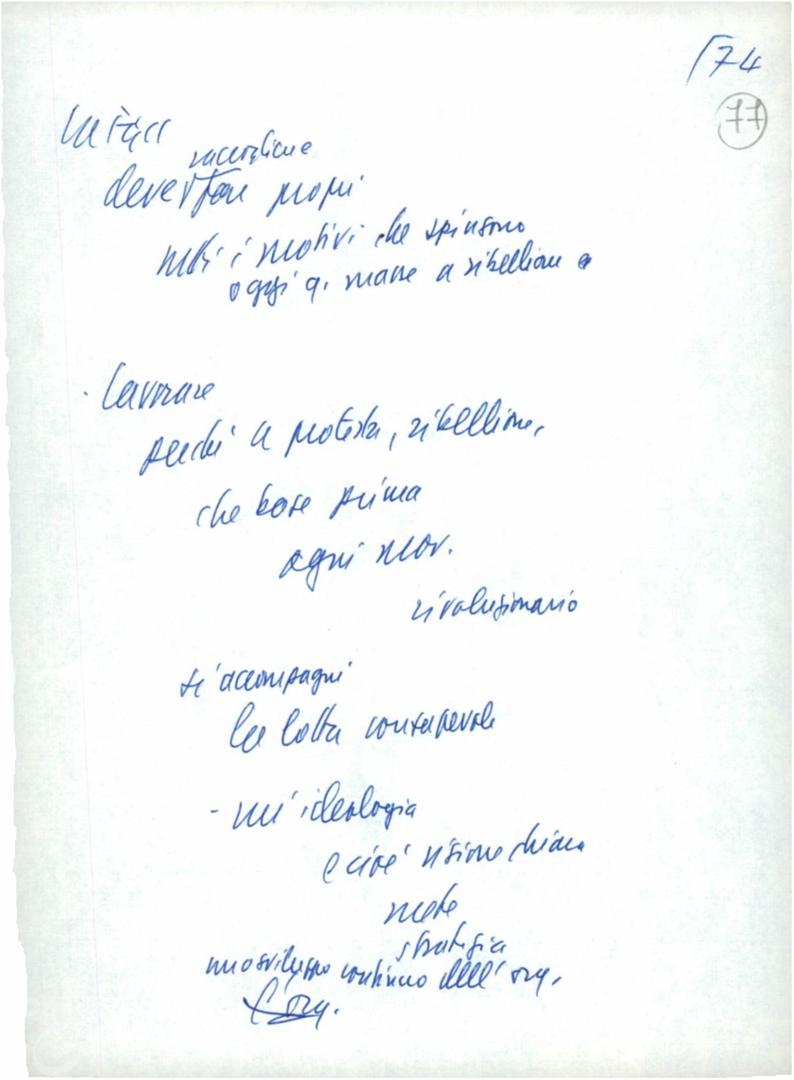 174
77
raccogliere
deve fare propri
tutti i motivi che spingono
oggi q. masse a ribellione e
· Lavorare
perché a protesta, ribellione,
che base prima
ogni mov.
rivoluzionario
si accompagni
la lotta consapevole
- un'ideologia
e cioè visione chiara
mete
strategia
uno sviluppo continuo dell'org.
l'org.